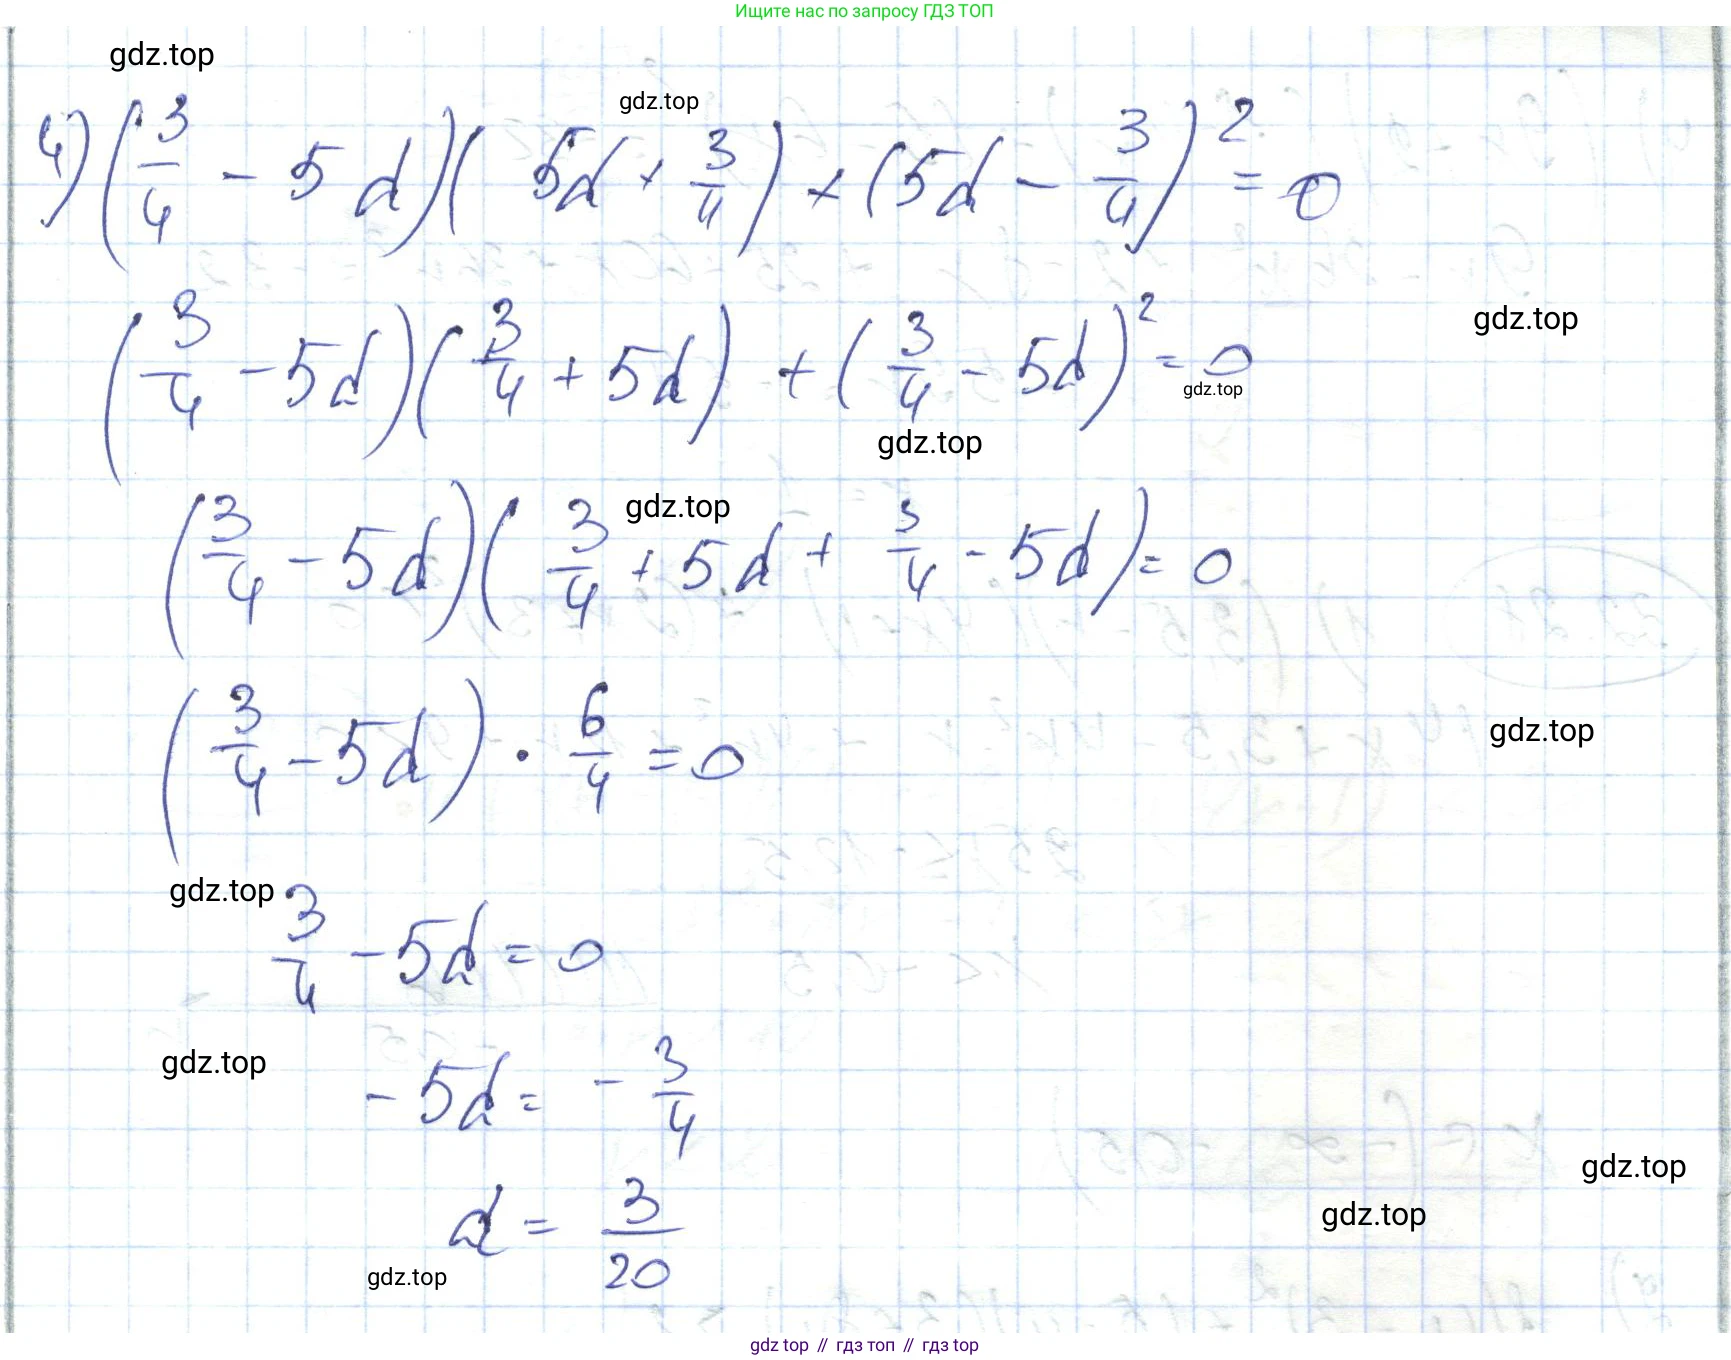 Ищите нас по запросу ГДЗ ТОП
gdz.top
gdz.top
4) (3/4 - 5d)(5d + 3/4) + (5d - 3/4)² = 0
gdz.top
(3/4 - 5d)(3/4 + 5d) + (3/4 - 5d)² = 0
gdz.top
gdz.top
gdz.top
(3/4 - 5d)(3/4 + 5d + 3/4 - 5d) = 0
(3/4 - 5d) · 6/4 = 0
gdz.top
gdz.top
3/4 - 5d = 0
gdz.top
- 5d = - 3/4
gdz.top
gdz.top
d = 3/20
gdz.top
gdz top // гдз топ // gdz top